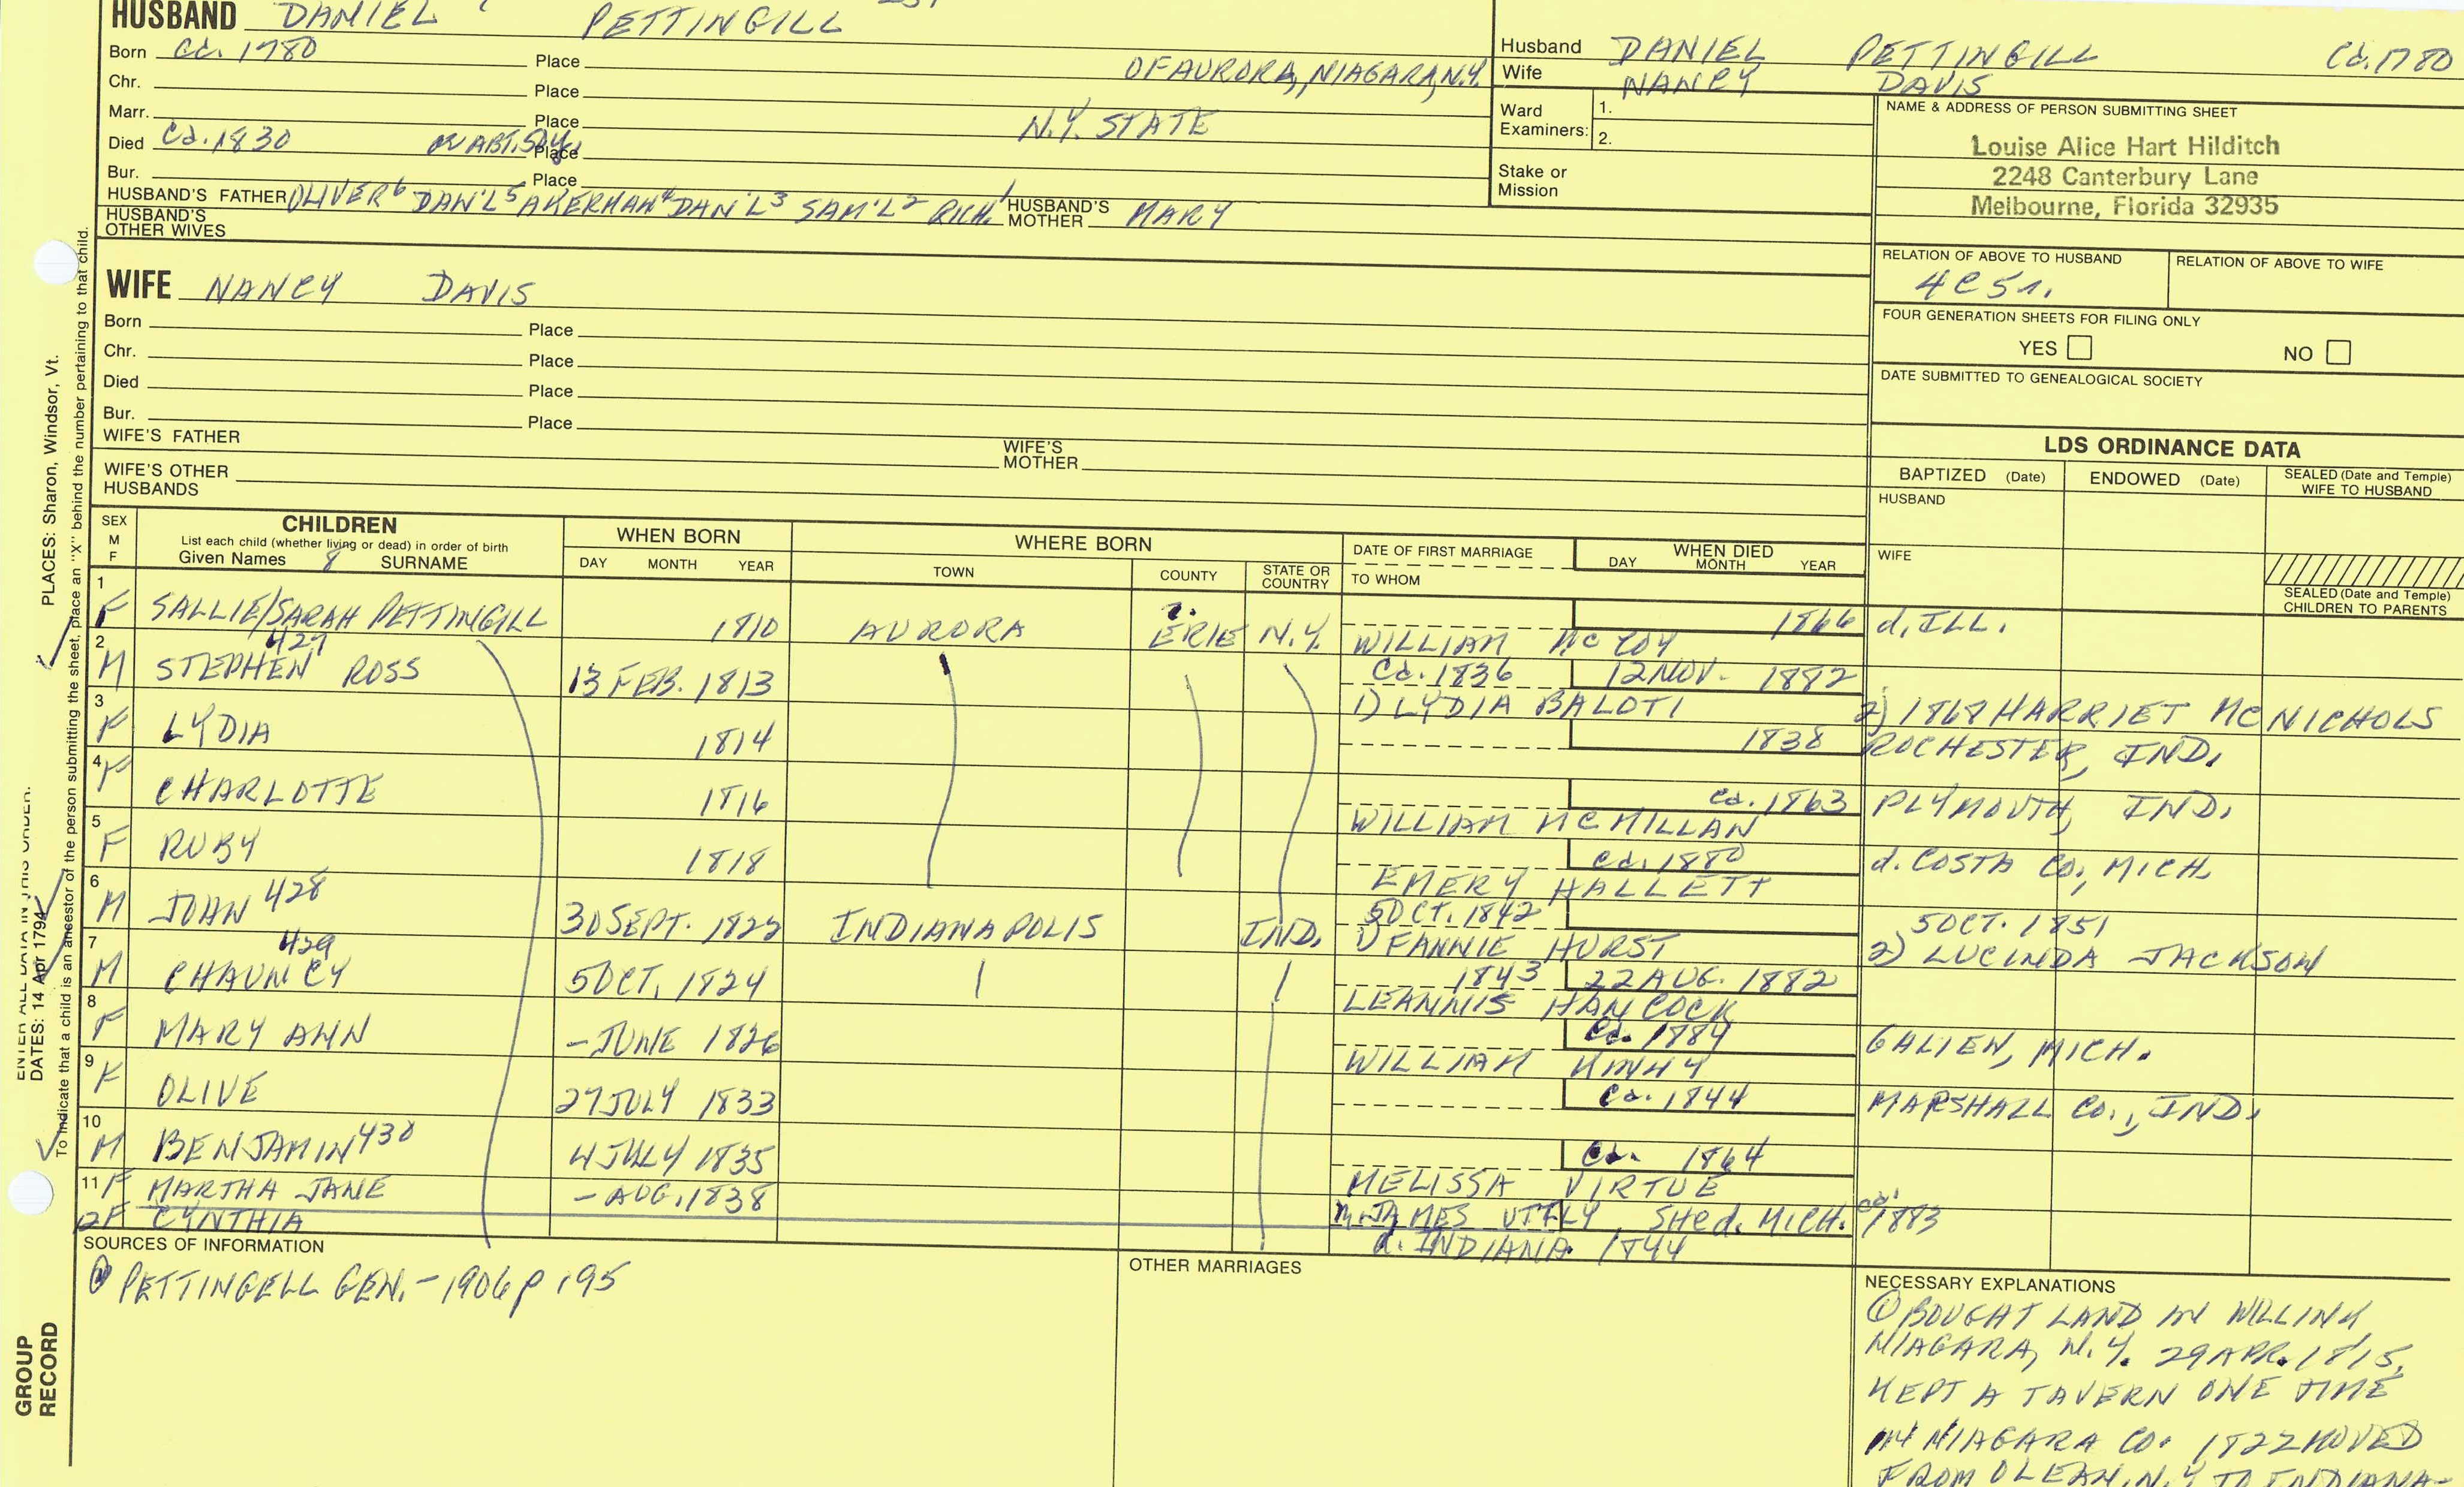 HUSBAND DANIEL PETTINGILL
Born Ca. 1780 Place OF AURORA, NIAGARA, N.Y.
Chr. Place
Marr. Place N.Y. STATE
Died Ca. 1830 ABT. 50y. Place
Bur. Place
HUSBAND'S FATHER OLIVER6 DAN'L5 AKERMAN4 DAN'L3 SAM'L2 RICH.1 HUSBAND'S MOTHER MARY
HUSBAND'S OTHER WIVES
Husband DANIEL PETTINGILL Ca. 1780
Wife NANCY DAVIS
Ward Examiners: 1.
2.
Stake or Mission
NAME & ADDRESS OF PERSON SUBMITTING SHEET
Louise Alice Hart Hilditch
2248 Canterbury Lane
Melbourne, Florida 32935
RELATION OF ABOVE TO HUSBAND RELATION OF ABOVE TO WIFE
4C5r.
FOUR GENERATION SHEETS FOR FILING ONLY
YES NO
DATE SUBMITTED TO GENEALOGICAL SOCIETY
WIFE NANCY DAVIS
Born Place
Chr. Place
Died Place
Bur. Place
WIFE'S FATHER WIFE'S MOTHER
WIFE'S OTHER HUSBANDS
LDS ORDINANCE DATA
BAPTIZED (Date) ENDOWED (Date) SEALED (Date and Temple) WIFE TO HUSBAND
HUSBAND
WIFE
SEALED (Date and Temple) CHILDREN TO PARENTS
SEX M F
CHILDREN
List each child (whether living or dead) in order of birth
Given Names 8 SURNAME
WHEN BORN
DAY MONTH YEAR
WHERE BORN
TOWN COUNTY STATE OR COUNTRY
DATE OF FIRST MARRIAGE
TO WHOM
WHEN DIED
DAY MONTH YEAR
1 F SALLIE/SARAH PETTINGILL 1810 AURORA ?. ERIE N.Y. WILLIAM McCOY 1866 d. ILL.
2 M 427 STEPHEN ROSS 13 FEB. 1813 Ca. 1836 12 NOV. 1882
1) LYDIA BALOTI 2) 1868 HARRIET McNICHOLS
3 F LYDIA 1814 1838 ROCHESTER, IND.
4 F CHARLOTTE 1816 Ca. 1863 PLYMOUTH, IND.
WILLIAM McMILLAN
5 F RUBY 1818 Ca. 1880 d. COSTA CO, MICH.
EMERY HALLETT
6 M JOHN 428 30 SEPT. 1822 INDIANAPOLIS IND. 5 OCT. 1842 5 OCT. 1851
1) FANNIE HURST 2) LUCINDA JACKSON
7 M 429 CHAUNCY 5 OCT. 1824 1843 22 AUG. 1882
LEANNIS HANCOCK
8 F MARY ANN - JUNE 1826 Ca. 1884 GALIEN, MICH.
WILLIAM
9 F OLIVE 27 JULY 1833 Ca. 1844 MARSHALL CO., IND.
10 M BENJAMIN 430 4 JULY 1835 Ca. 1864
MELISSA VIRTUE
11 F MARTHA JANE - AUG. 1838 m. JAMES UTFLY SHE d. MICH. ca. 1883
F CYNTHIA d. INDIANA 1844
SOURCES OF INFORMATION
① PETTINGELL GEN. - 1906 p 195
OTHER MARRIAGES
NECESSARY EXPLANATIONS
① BOUGHT LAND IN WILLINK,
NIAGARA, N.Y. 29 APR. 1815,
KEPT A TAVERN ONE TIME
IN NIAGARA CO. 1822 MOVED
FROM OLEAN, N.Y. TO INDIANA-
PLACES: Sharon, Windsor, Vt.
ENTER ALL DATA IN THIS ORDER:
DATES: 14 Apr 1794
To indicate that a child is an ancestor of the person submitting the sheet, place an "X" behind the number pertaining to that child.
GROUP RECORD